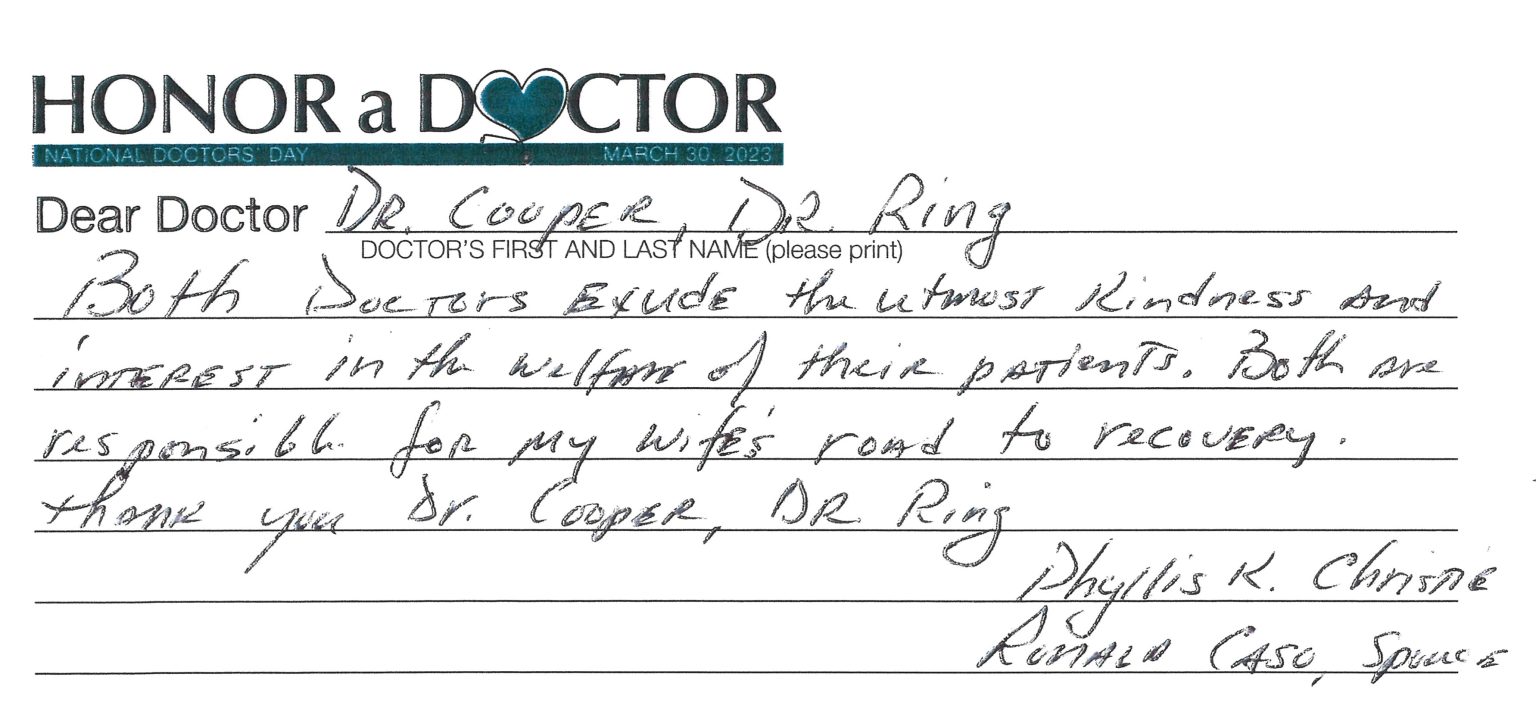 HONOR a DOCTOR
NATIONAL DOCTORS' DAY MARCH 30, 2023
Dear Doctor DR. COOPER, DR. Ring
DOCTOR'S FIRST AND LAST NAME (please print)
Both Doctors Exude the utmost Kindness and
interest in the welfare of their patients. Both are
responsible for my wife's road to recovery.
thank you Dr. Cooper, DR Ring
Phyllis K. Christie
Ronald Caso, Spouse